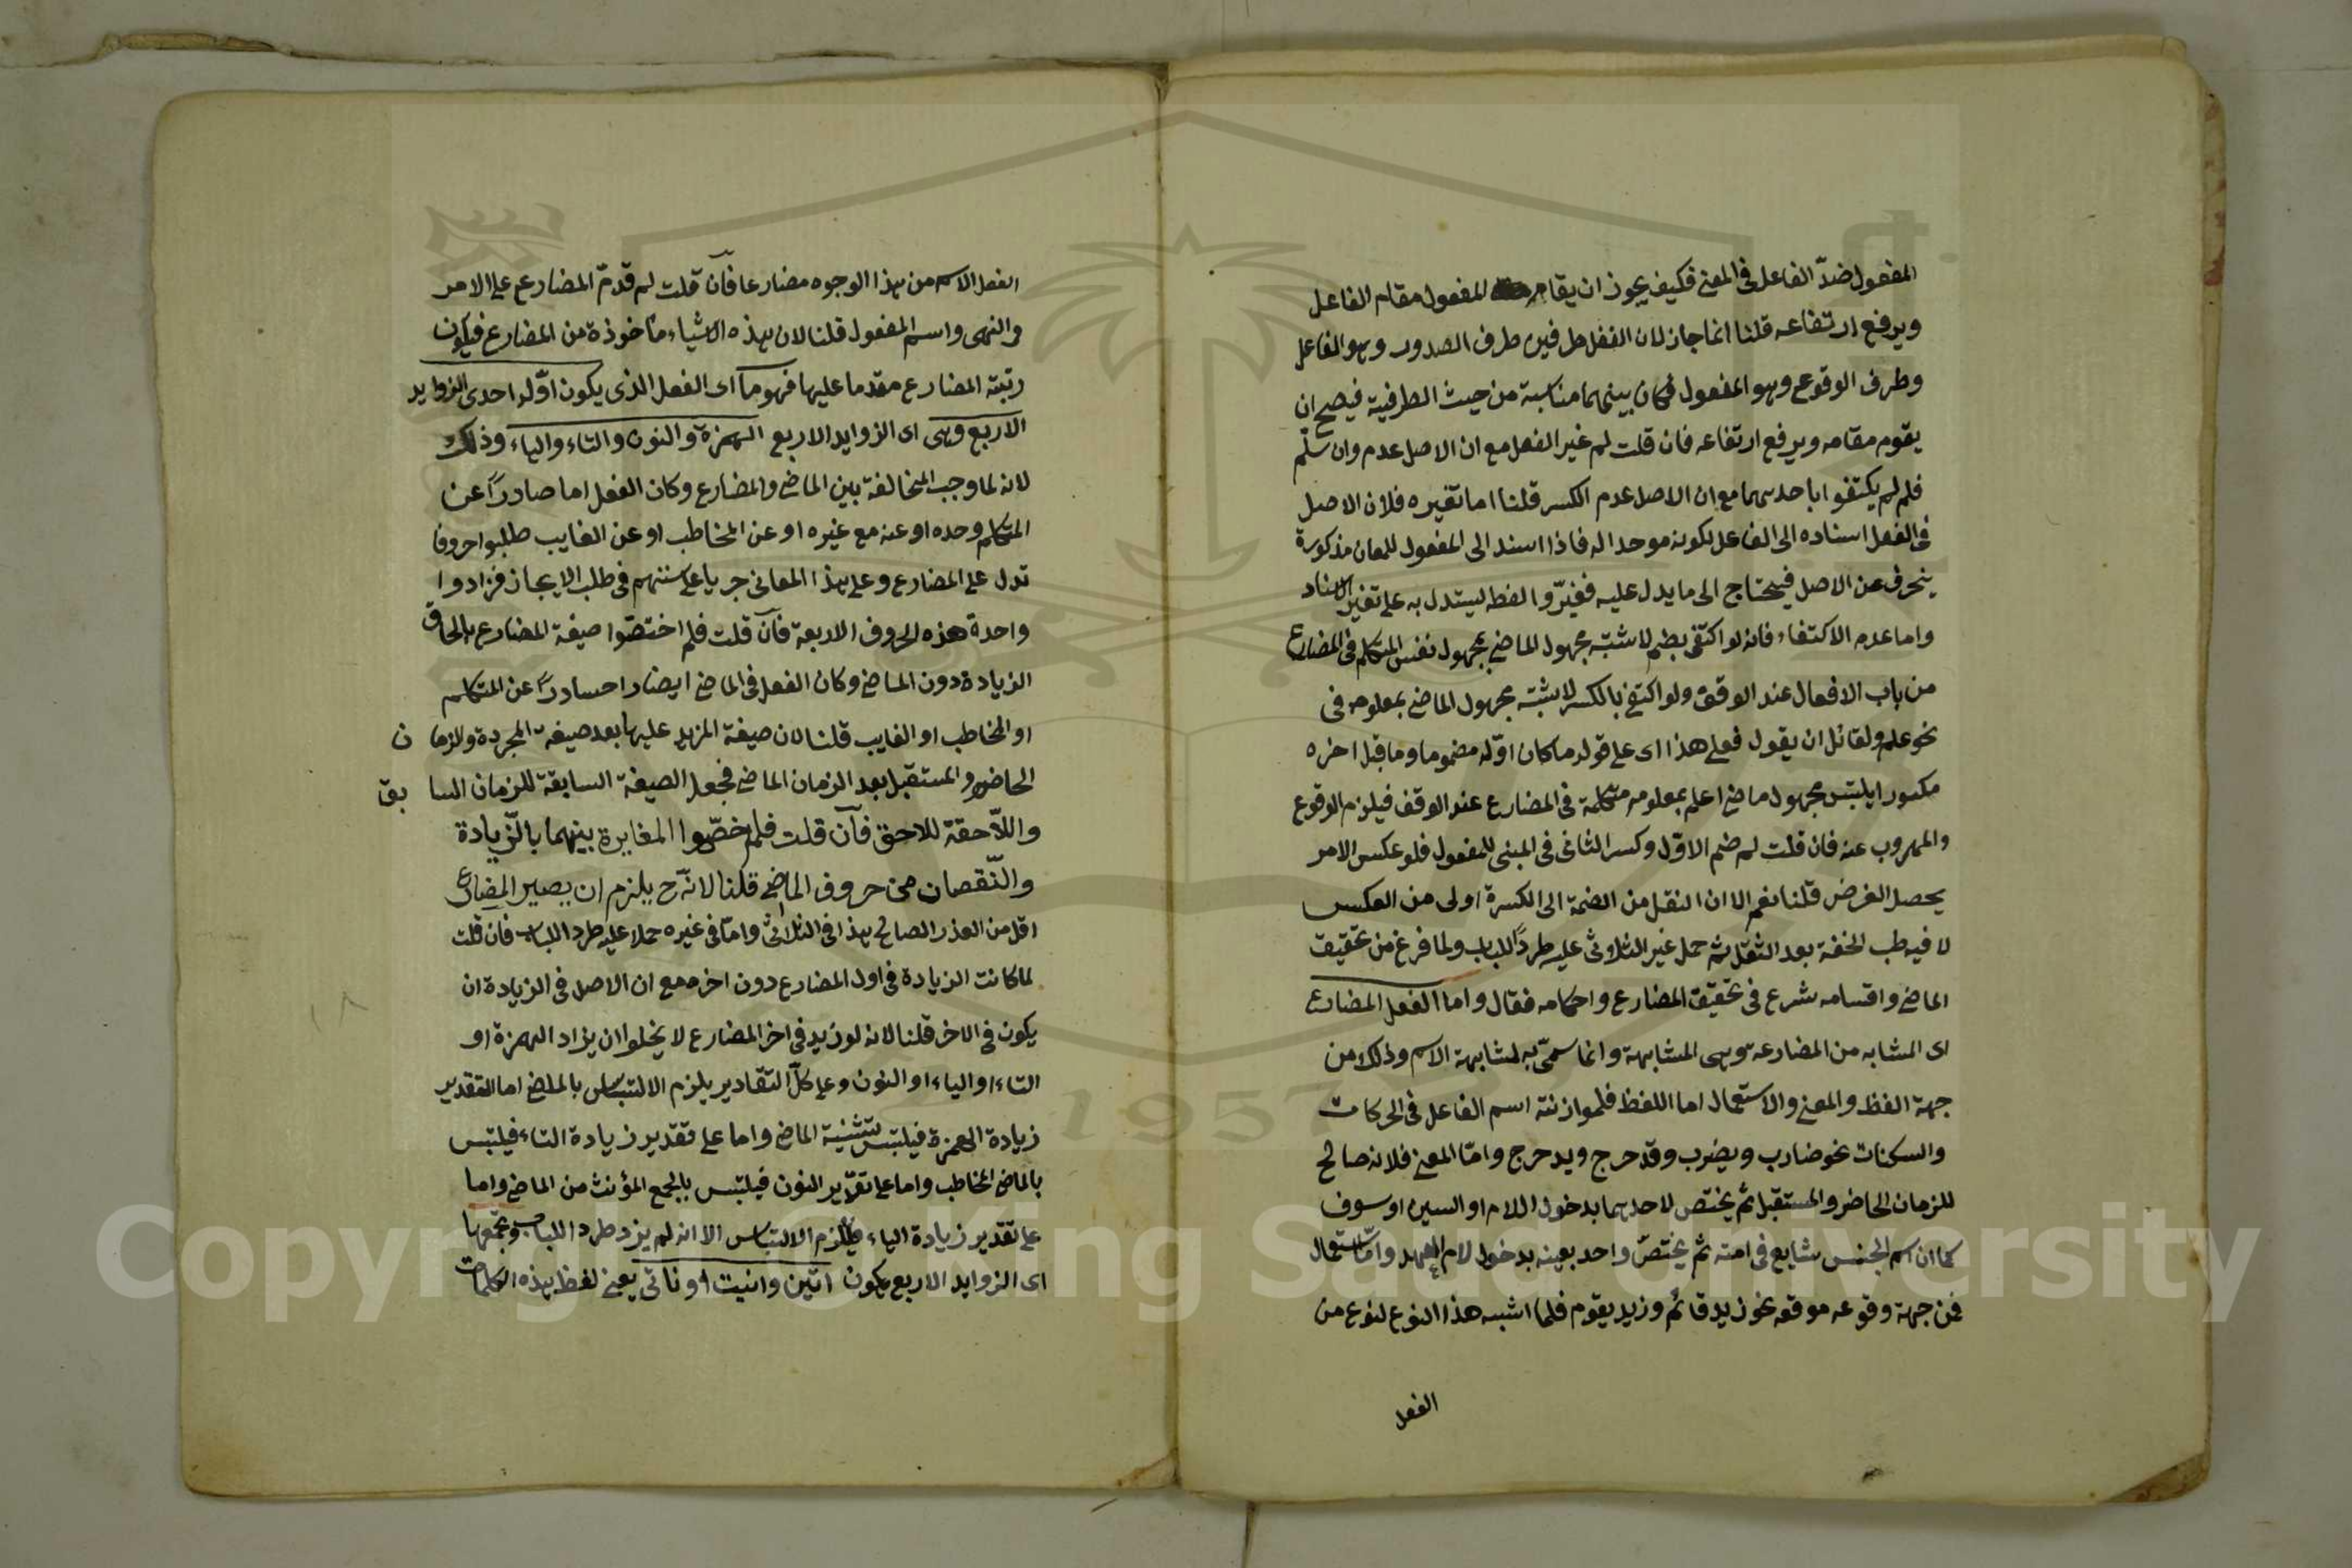 المفعول ضدّ الفاعل فى المعنى فكيف يجوز ان يقام المفعول مقام الفاعل
ويرفع ارتفاعه قلنا انما جاز لان الفعل طرفين طرف الصدور وهو الفاعل
وطرف الوقوع وهو المفعول فكان بينهما مناسبة من حيث الطرفية فيصح ان
يقوم مقامه ويرفع ارتفاعه فان قلت لم غير الفعل مع ان الاصل عدم وان سلّم
فلم لم يكتفوا باحدهما مع ان الاصل عدم الكسر قلنا اما تغيره فلان الاصل
فى الفعل اسناده الى الفاعل لكونه موحدا له فاذا اسند الى المفعول للمعان مذكورة
ينحرف عن الاصل فيحتاج الى ما يدل عليه فغيّروا لفظه ليستدل به على تغير الاسناد
واما عدم الاكتفاء فانه لو اكتفى بضم لاشتبه مجهول الماضى بمجهول نفس المتكلم فى المضارع
من باب الافعال عند الوقف ولو اكتفى بالكسر لاشتبه مجهول الماضى بمعلومه فى
نحو علم ولقائل ان يقول فعلى هذا اى على قوله ما كان اوّله مضموما وما قبل اخره
مكسورا يلتبس مجهول ماضى اعلم بمعلومه متكلمة فى المضارع عند الوقف فيلزم الوقوع
والمهروب عنه فان قلت لم ضم الاوّل وكسر الثانى فى المبنى للمفعول فلو عكس الامر
يحصل الغرض قلنا نعم الا ان النقل من الضمة الى الكسرة اولى من العكس
لا فيه طب الخفة بعد الثقل ثم حمل غير الثلاثى عليه طردًا للباب ولما فرغ من تحقيق
الماضى واقسامه شرع فى تحقيق المضارع واحكامه فقال واما الفعل المضارع
اى المشابه من المضارعة وهى المشابهة وانما سمّى به لمشابهة الاسم وذلك من
جهة الفظ والمعنى والاستعمال اما اللفظ فلموازنته اسم الفاعل فى الحركات
والسكنات نحو ضارب ويضرب وقد حرج ويدحرج وامّا المعنى فلانه صالح
للزمان الحاضر والمستقبل ثم يختص لاحدهما بدخول اللام او السين او سوف
كما ان اسم الجنس شايع فى امته ثم يختصّ واحد بعينه بدخول لام العهد وامّا استعمال
فمن جهة وقوعه موقعه نحو زيد قائم وزيد يقوم فلما اشبه هذا النوع لنوع من
الفعل
الفعل الاسم من هذا الوجوه مضارعا فان قلت لم قدمّ المضارع على الامر
والنهى واسم المفعول قلنا لان هذه الاشياء ماخوذة من المضارع فيكون
رتبة المضارع مقدما عليها فهو ما اى الفعل الذى يكون اوّله احدى الزوايد
الاربع وهى اى الزوايد الاربع الهمزة والنون والتاء والياء وذلك
لانه لما وجب المخالفة بين الماضى والمضارع وكان الفعل اما صادرًا عن
المتكلم وحده او عنه مع غيره او عن المخاطب او عن الغايب طلبوا حروفا
تدل على المضارع وعلى هذا المعانى جريا على سننهم فى طلب الايجاز فزادوا
واحدة هذه الحروف الاربعة فان قلت فلم اختصّوا صيغة المضارع بالحاق
الزيادة دون الماضى وكان الفعل فى الماضى ايضا را حسادرًا عن المتكلم
او المخاطب او الغايب قلنا لان صيغة المزيد عليها بعد صيغة المجردة والزمان
الحاضر والمستقبل بعد الزمان الماضى فجعل الصيغة السابقة للزمان السابق
واللاّحقة للاحق فان قلت فلم خصّوا المغايرة بينهما بالزّيادة
والنّقصان من حروف الماضى قلنا لانّه ح يلزم ان يصير المضارع
اقل من العذر الصالح هذا فى الثلاثى وامّا فى غيره حملا عليه طرد اللباب فان قلت
لما كانت الزيادة فى اول المضارع دون اخره مع ان الاصل فى الزيادة ان
يكون فى الاخر قلنا لانه لو زيد فى اخر المضارع لا يخلوا ان يزاد الهمزة او
التاء او الياء او النون وعلى كلّ التقادير يلزم الالتباس بالماضى اما التقدير
زيادة الهمزة فيلتبس بتثنية الماضى واما على تقدير زيادة التاء فيلتبس
بالماضى المخاطب واما على تقدير النون فيلتبس بالجمع المؤنث من الماضى واما
على تقدير زيادة الياء فلا يلزم الالتباس الا انه لم يزد طرد اللباب ويجمعها
اى الزوايد الاربع يكون اتين وانيت او ناتى يعنى لفظ هذه الكلمات